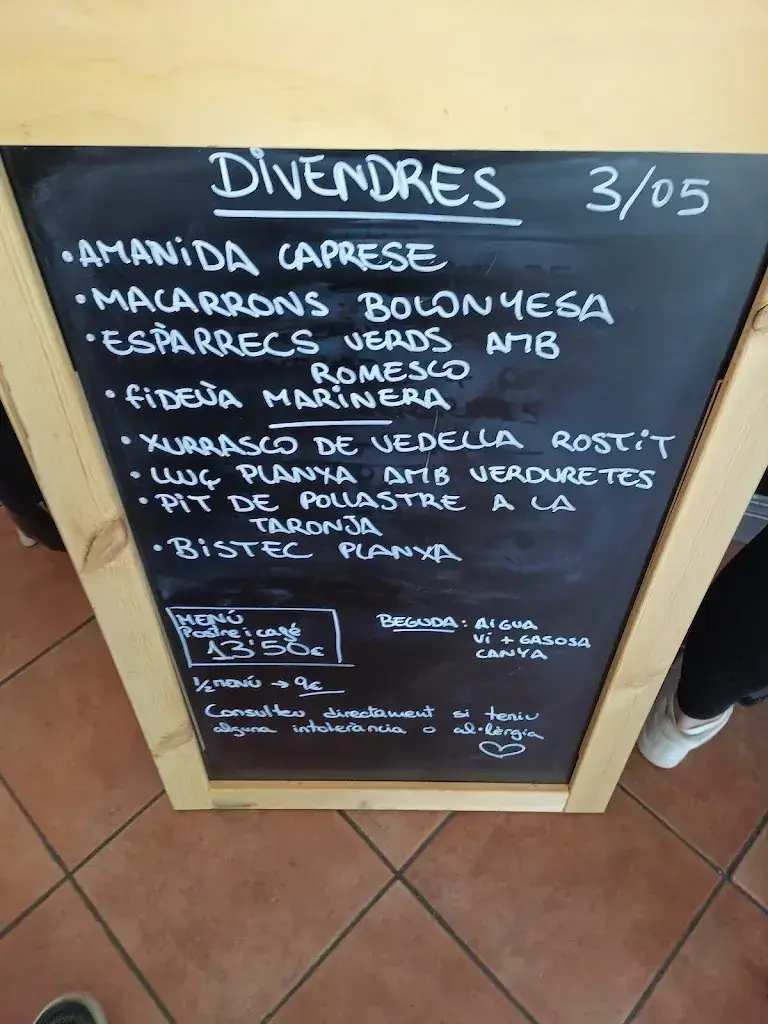 DiVENDRES 3/05
•AMANiDA CAPRESE
•MACARRONS BOLONYESA
•ESPÀRRECS VERDS AMB
ROMESCO
•fiDEUÀ MARiNERA
•XURRASCO DE VEDELLA ROSTiT
•LLUÇ PLANXA AMB VERDURETES
•PiT DE POLLASTRE A LA
TARONJA
•BiSTEC PLANXA
MENÚ
Postre i café
13'50€
BEGUDA: AiGUA
Vi + GASOSA
CANYA
1/2 MENÚ → 9€
Consulteu directament si teniu
alguna intolerància o al·lèrgia